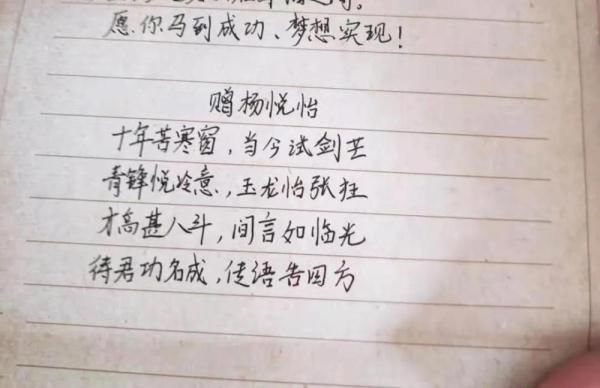 愿你马到成功、梦想实现！
赠杨悦怡
十年苦寒窗，当今试剑芒
青锋悦冷意，玉龙怡张狂
才高甚八斗，间言如临光
待君功名成，传语告四方